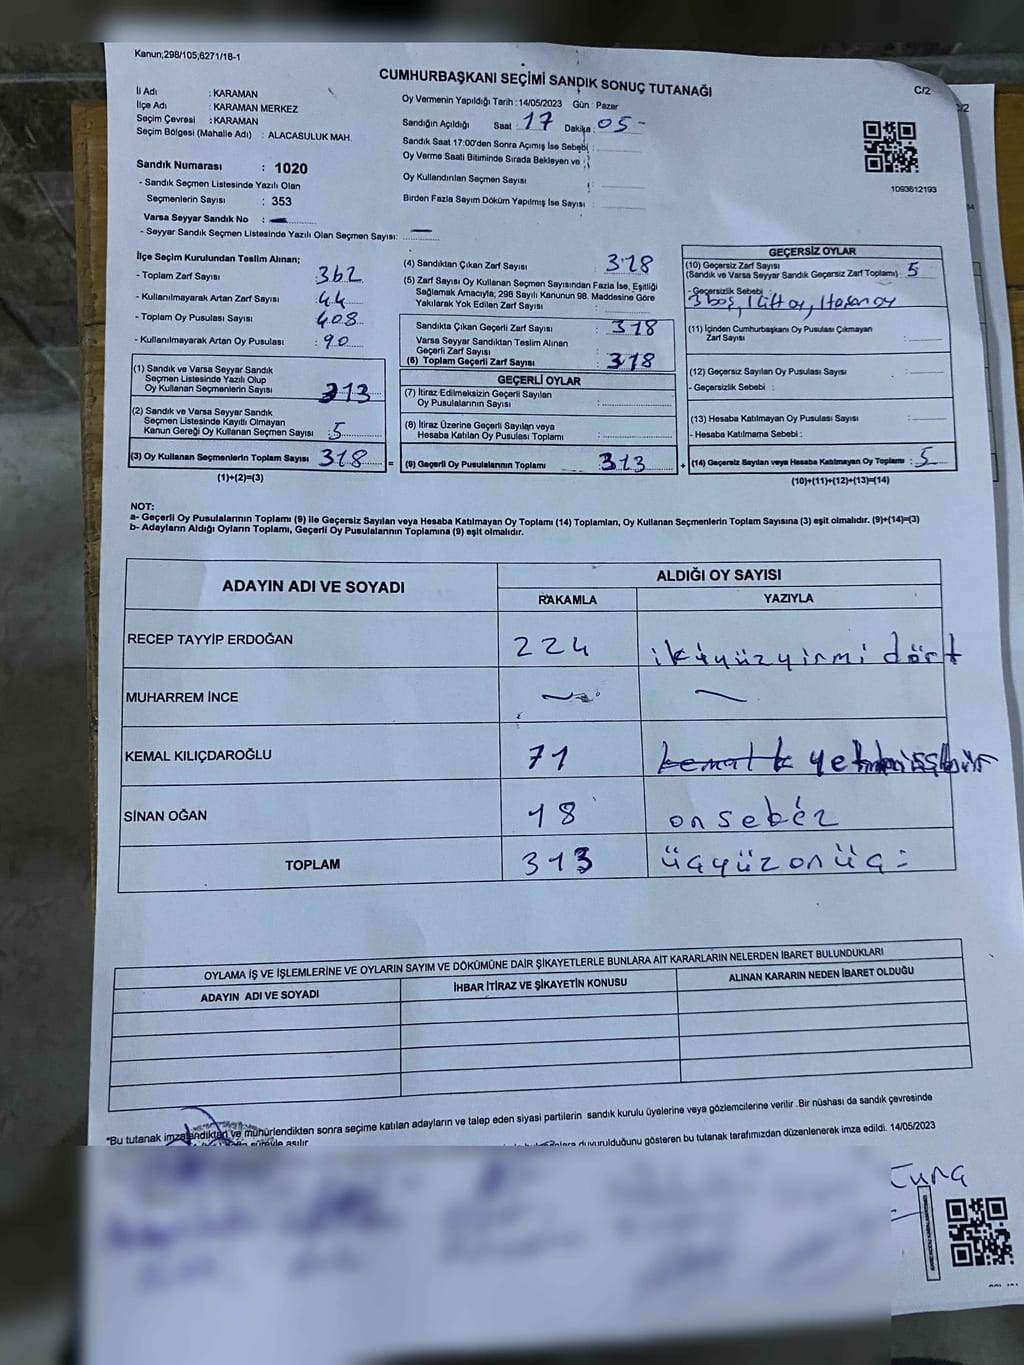 Kanun;298/105,6271/18-1
CUMHURBAŞKANI SEÇİMİ SANDIK SONUÇ TUTANAĞI
C/2
İl Adı : KARAMAN
İlçe Adı : KARAMAN MERKEZ
Seçim Çevresi : KARAMAN
Seçim Bölgesi (Mahalle Adı) : ALACASULUK MAH.
Sandık Numarası : 1020
- Sandık Seçmen Listesinde Yazılı Olan
Seçmenlerin Sayısı : 353
Varsa Seyyar Sandık No : -
- Seyyar Sandık Seçmen Listesinde Yazılı Olan Seçmen Sayısı: -
Oy Vermenin Yapıldığı Tarih : 14/05/2023 Gün : Pazar
Sandığın Açıldığı Saat : 17 Dakika : 05-
Sandık Saat 17:00'den Sonra Açımış İse Sebebi :
Oy Verme Saati Bitiminde Sırada Bekleyen ve :
Oy Kullandırılan Seçmen Sayısı :
Birden Fazla Sayım Döküm Yapılmış İse Sayısı :
1093612193
İlçe Seçim Kurulundan Teslim Alınan;
- Toplam Zarf Sayısı : 362
- Kullanılmayarak Artan Zarf Sayısı : 44
- Toplam Oy Pusulası Sayısı : 408
- Kullanılmayarak Artan Oy Pusulası : 90
(1) Sandık ve Varsa Seyyar Sandık
Seçmen Listesinde Yazılı Olup
Oy Kullanan Seçmenlerin Sayısı : 313
(2) Sandık ve Varsa Seyyar Sandık
Seçmen Listesinde Kayıtlı Olmayan
Kanun Gereği Oy Kullanan Seçmen Sayısı : 5
(3) Oy Kullanan Seçmenlerin Toplam Sayısı 318
(1)+(2)=(3)
(4) Sandıktan Çıkan Zarf Sayısı : 318
(5) Zarf Sayısı Oy Kullanan Seçmen Sayısından Fazla İse, Eşitliği
Sağlamak Amacıyla; 298 Sayılı Kanunun 98. Maddesine Göre
Yakılarak Yok Edilen Zarf Sayısı :
Sandıkta Çıkan Geçerli Zarf Sayısı : 318
Varsa Seyyar Sandıktan Teslim Alınan
Geçerli Zarf Sayısı :
(6) Toplam Geçerli Zarf Sayısı : 318
GEÇERLİ OYLAR
(7) İtiraz Edilmeksizin Geçerli Sayılan
Oy Pusulalarının Sayısı :
(8) İtiraz Üzerine Geçerli Sayılan veya
Hesaba Katılan Oy Pusulası Toplamı :
= (9) Geçerli Oy Pusulalarının Toplamı : 313
GEÇERSİZ OYLAR
(10) Geçersiz Zarf Sayısı
(Sandık ve Varsa Seyyar Sandık Geçersiz Zarf Toplamı) : 5
- Geçersizlik Sebebi :
3 boş, 1 çift oy, 1 tasan oy
(11) İçinden Cumhurbaşkanı Oy Pusulası Çıkmayan
Zarf Sayısı :
(12) Geçersiz Sayılan Oy Pusulası Sayısı :
- Geçersizlik Sebebi :
(13) Hesaba Katılmayan Oy Pusulası Sayısı :
- Hesaba Katılmama Sebebi :
+ (14) Geçersiz Sayılan veya Hesaba Katılmayan Oy Toplamı : 5
(10)+(11)+(12)+(13)=(14)
NOT:
a- Geçerli Oy Pusulalarının Toplamı (9) ile Geçersiz Sayılan veya Hesaba Katılmayan Oy Toplamı (14) Toplamları, Oy Kullanan Seçmenlerin Toplam Sayısına (3) eşit olmalıdır. (9)+(14)=(3)
b- Adayların Aldığı Oyların Toplamı, Geçerli Oy Pusulalarının Toplamına (9) eşit olmalıdır.
ADAYIN ADI VE SOYADI
ALDIĞI OY SAYISI
RAKAMLA YAZIYLA
RECEP TAYYİP ERDOĞAN 224 ikiyüzyirmi dört
MUHARREM İNCE
KEMAL KILIÇDAROĞLU 71 kemal k yetmişbir
SİNAN OĞAN 18 on sekéz
TOPLAM 313 üçyüz onüç:
OYLAMA İŞ VE İŞLEMLERİNE VE OYLARIN SAYIM VE DÖKÜMÜNE DAİR ŞİKAYETLERLE BUNLARA AİT KARARLARIN NELERDEN İBARET BULUNDUKLARI
ADAYIN ADI VE SOYADI İHBAR İTİRAZ VE ŞİKAYETİN KONUSU ALINAN KARARIN NEDEN İBARET OLDUĞU
*Bu tutanak imzalandıktan ve mühürlendikten sonra seçime katılan adayların ve talep eden siyasi partilerin sandık kurulu üyelerine veya gözlemcilerine verilir .Bir nüshası da sandık çevresinde
duyurulduğunu gösteren bu tutanak tarafımızdan düzenlenerek imza edildi. 14/05/2023